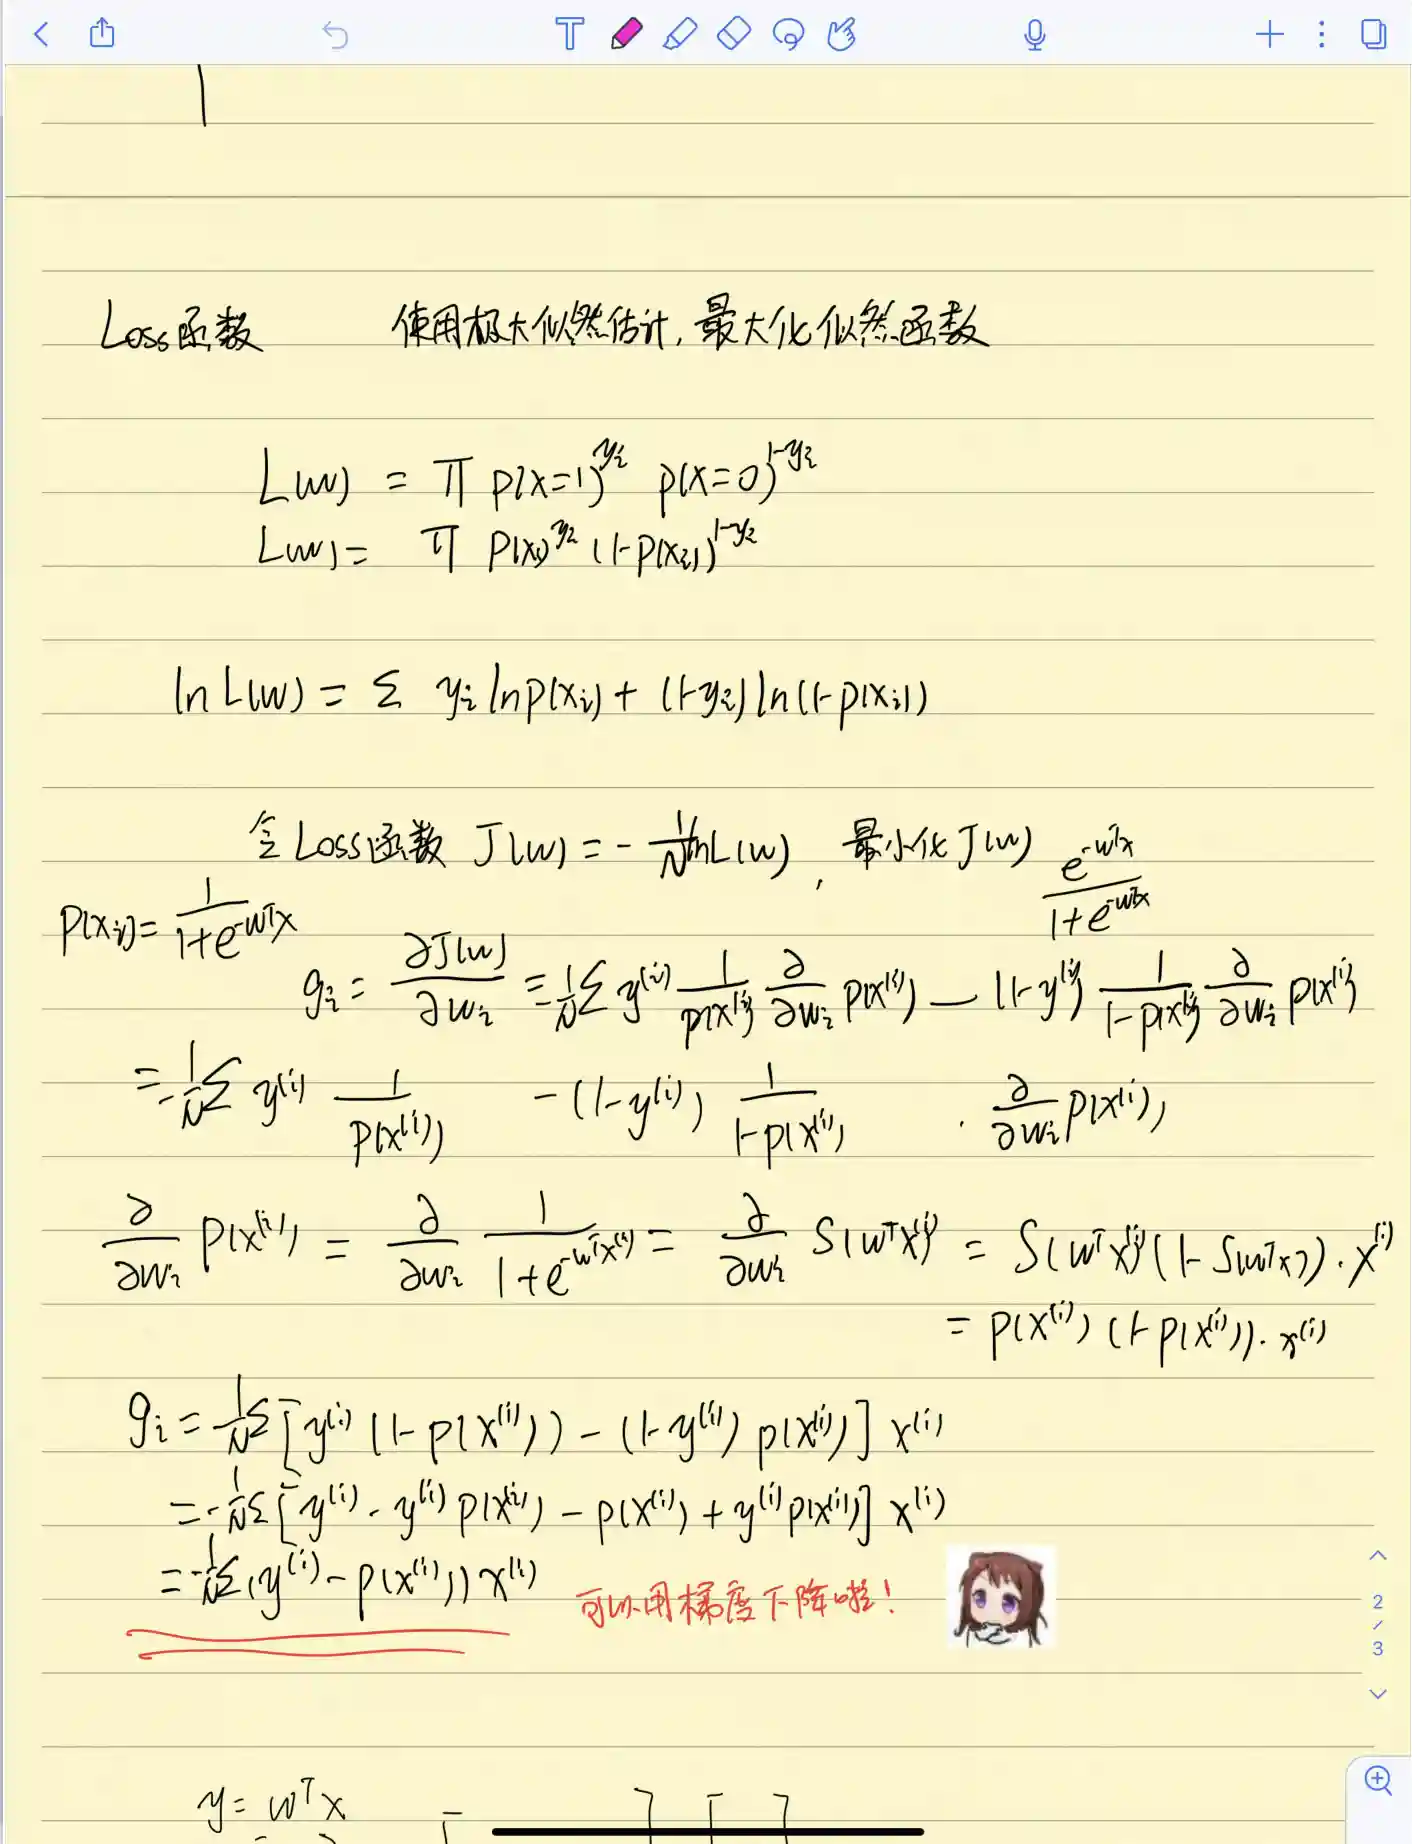 Loss函数 使用极大似然估计,最大化似然函数
L(w) = π p(x=1)^{y_i} p(x=0)^{1-y_i}
L(w) = π p(x_i)^{y_i} (1-p(x_i))^{1-y_i}
ln L(w) = Σ y_i ln p(x_i) + (1-y_i) ln(1-p(x_i))
令Loss函数 J(w) = - 1/N ln L(w), 最小化 J(w) e^{-w^Tx}/(1+e^{-w^Tx})
p(x_i) = 1/(1+e^{-w^Tx})
g_i = ∂J(w)/∂w_i = -1/N Σ y^{(i)} 1/p(x^{(i)}) ∂/∂w_i p(x^{(i)}) - (1-y^{(i)}) 1/(1-p(x^{(i)})) ∂/∂w_i p(x^{(i)})
= -1/N Σ y^{(i)} 1/p(x^{(i)}) -(1-y^{(i)}) 1/(1-p(x^{(i)})) · ∂/∂w_i p(x^{(i)})
∂/∂w_i p(x^{(i)}) = ∂/∂w_i 1/(1+e^{-w^Tx^{(i)}}) = ∂/∂w_i S(w^Tx^{(i)}) = S(w^Tx^{(i)})(1-S(w^Tx))·x^{(i)}
= p(x^{(i)}) (1-p(x^{(i)}))·x^{(i)}
g_i = -1/N Σ[y^{(i)} (1-p(x^{(i)})) - (1-y^{(i)}) p(x^{(i)})] x^{(i)}
= -1/N Σ[y^{(i)} - y^{(i)} p(x^{(i)}) - p(x^{(i)}) + y^{(i)} p(x^{(i)})] x^{(i)}
= -1/N Σ(y^{(i)} - p(x^{(i)})) x^{(i)} 可以用梯度下降啦!
2/3
y = w^T x